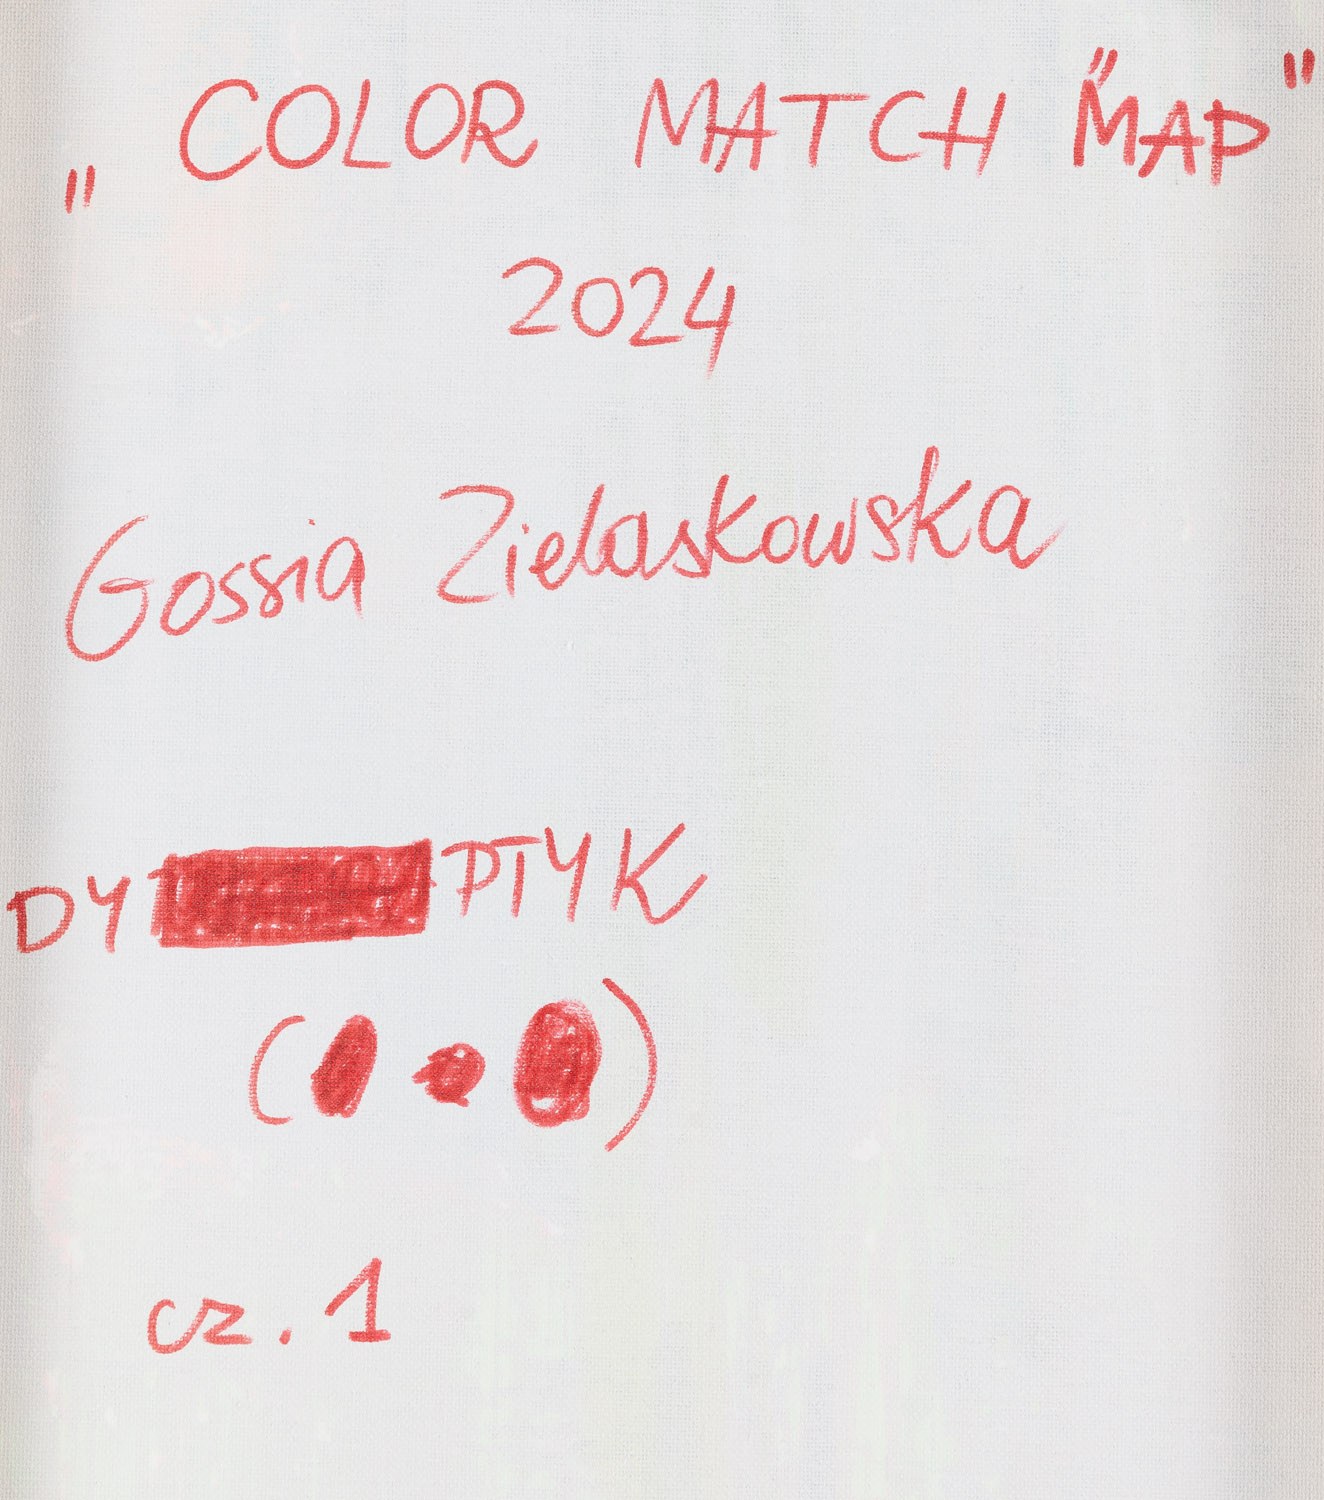 „COLOR MATCH "MAP"
2024
Gossia Zielaskowska
DY PTYK
( )
cz. 1